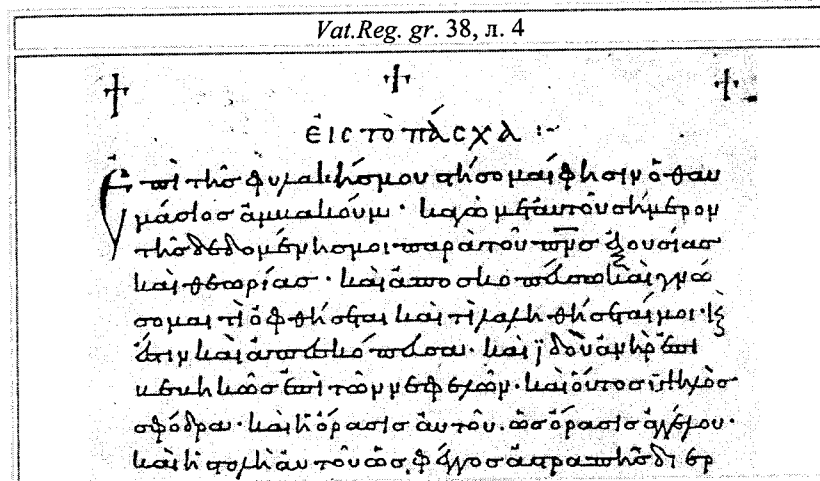 Vat.Reg. gr. 38, л. 4
ΕΙC ΤὸΠΆCΧΑ :~
Ἐπὶ τῆς φυλακῆς μου στήσομαί φησιν ὁ θαυ
μάσιος ἀμβακούμ · καγὼ μεταυτοῦ σήμερον
τῆς δεδομένης μοι παρὰ τοῦ πν̅ς ἐξουσίας
καὶ θεωρίας · καὶ ἀποσκοπεύσω καὶ γνώ
σομαι τί ὀφθήσεται καὶ τί λαληθήσεταί μοι · κ̀
ἔστην καὶ ἀπεσκόπευσα · καὶ ϊδοὺ ἀνὴρ ἐπι
βεβηκὼς ἐπὶ τῶν νεφελῶν · καὶ οὗτος ὑψηλὸς
σφόδρα · καὶ ἡ ὅρασις αὐτοῦ · ὡς ὅρασις ἀγγέλου ·
καὶ ἡ στολὴ αὐτοῦ ὡς φέγγος ἀστραπῆς διερ